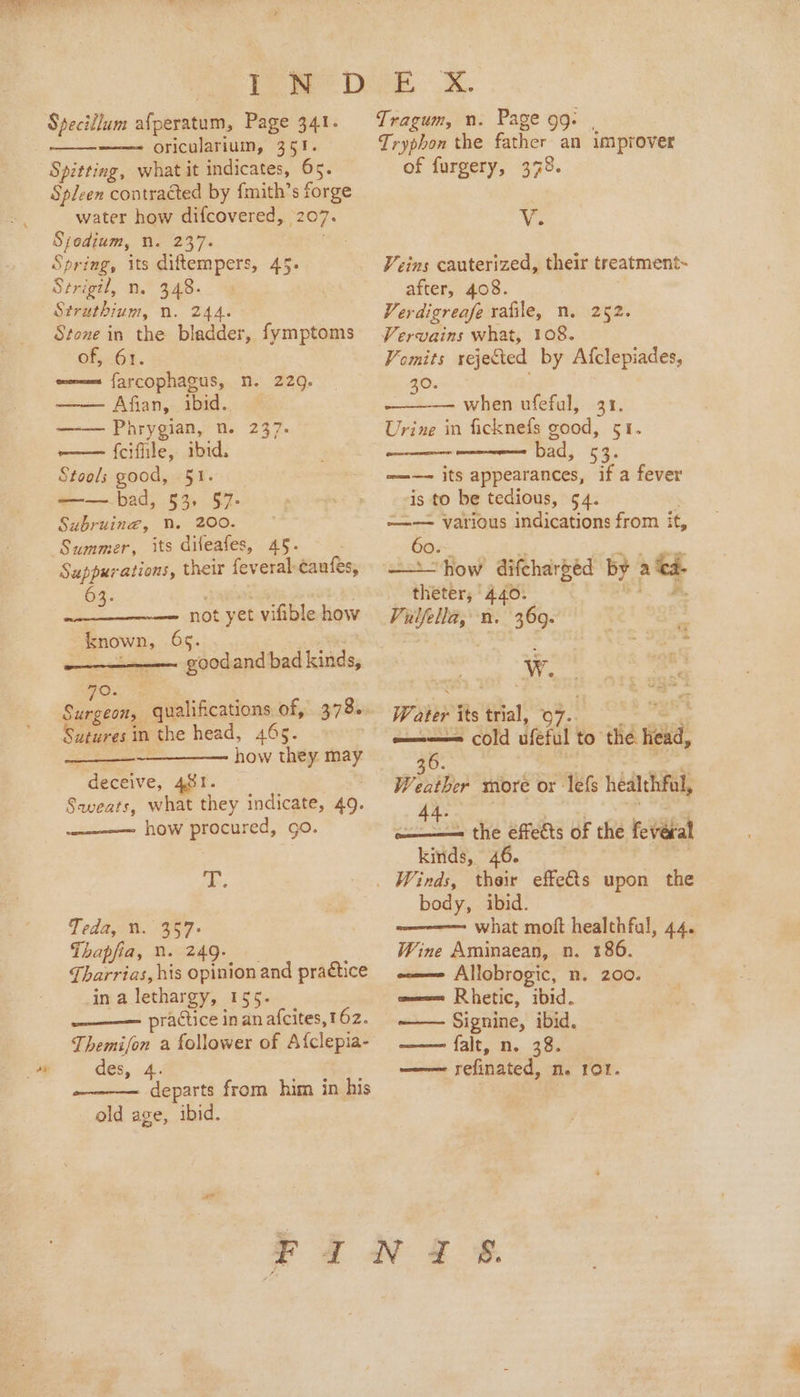 INDEX.
Specillum aſperatum, Page 341.
—— oricularium, 351.
Spitting, what it indicates, 65.
Spleen contracted by ſmith's forge
water how diſcovered, 207.
Spodium, n. 237.
Spring, its diſtempers, 45.
Strigil, n. 348.
Struthium, n. 244.
Stone in the bladder, ſymptoms
of, 61.
—— ſarcophagus, n. 229.
—— Aſian, ibid.
—— Phrygian, n. 237.
—— ſciſſile, ibid.
Stools good, 51.
—— bad, 53. 57.
Subruinæ, n. 200.
Summer, its diſeaſes, 45.
Suppurations, their ſeveral cauſes,
63.
—— not yet viſible how
known, 65.
—— good and bad kinds,
70.
Surgeon, qualifications of, 378.
Sutures in the head, 465.
—— how they may
deceive, 481.
Sweats, what they indicate, 49.
—— how procured, 90.
T.
Teda, n. 357.
Thapſia, n. 249.
Tharrias, his opinion and practice
in a lethargy, 155.
—— practice in an aſcites, 162.
Themiſon a follower of Aſclepia-
des, 4.
—— departs from him in his
old age, ibid.
Tragum, n. Page 99.
Tryphon the father an improver
of ſurgery, 378.
V.
Veins cauterized, their treatment
after, 408.
Verdigreaſe raſile, n. 252.
Vervains what, 108.
Vomits rejected by Aſclepiades,
30.
—— when uſeful, 31.
Urine in ſickneſs good, 51.
—— —— bad, 53.
—— its appearances, if a fever
is to be tedious, 54.
—— various indications from it,
60.
—— how diſcharged by a ca-
theter, 440.
Vulſella, n. 369.
W.
Water its trial, 97.
—— cold uſeful to the head,
36.
Weather more or leſs healthful,
44.
—— the effects of the ſeveral
kinds, 46.
Winds, their effects upon the
body, ibid.
—— what moſt healthful, 44.
Wine Aminaean, n. 186.
—— Allobrogic, n. 200.
—— Rhetic, ibid.
—— Signine, ibid.
—— ſalt, n. 38.
—— reſinated, n. 101.
FINIS.